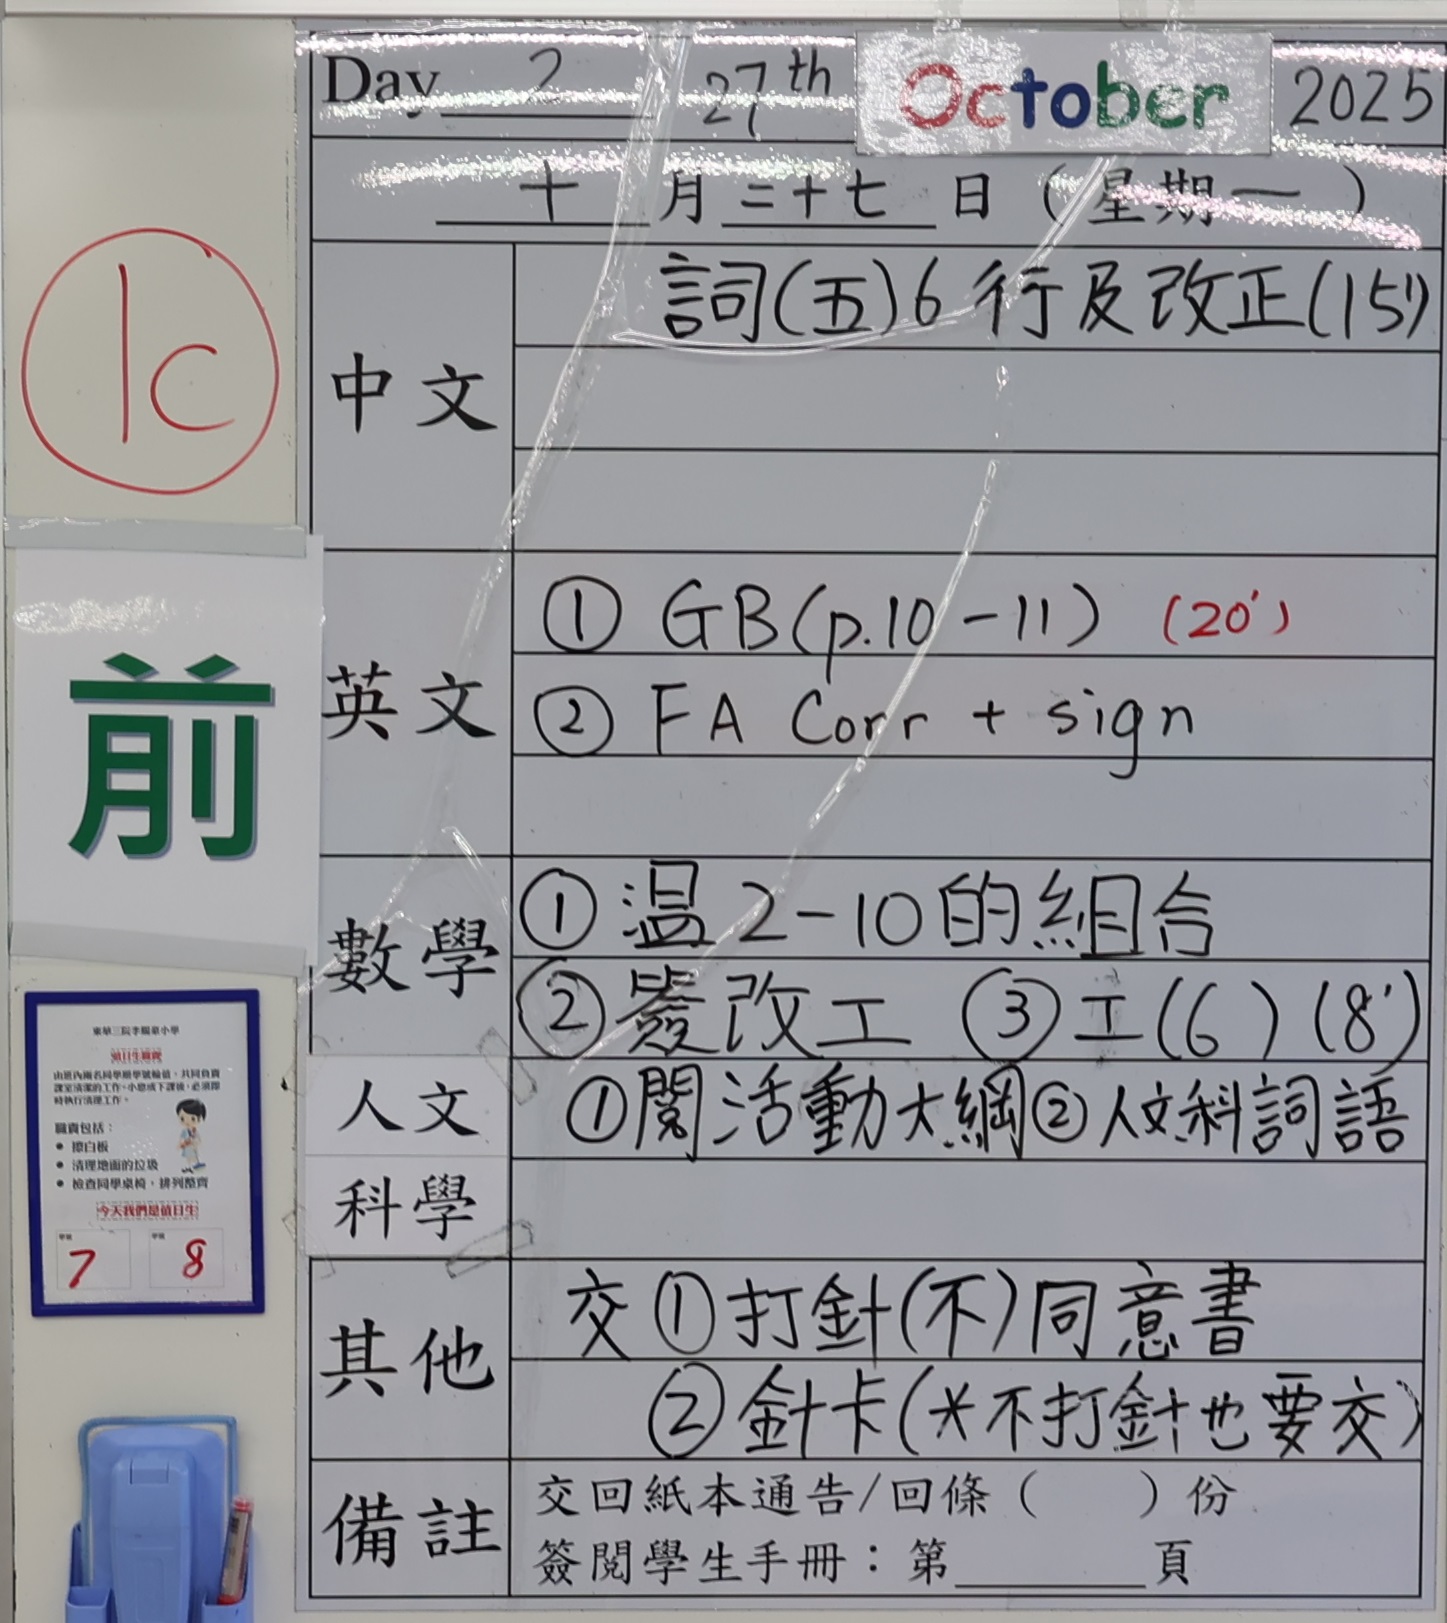 Day 2 27th October 2025
十 月 二十七 日 ( 星期一 )
1C
中文
詞(五)6行及改正(15')
前
英文
① GB(p.10-11) (20')
② FA Corr + sign
數學
① 溫2-10的組合
② 簽改工 ③ 工(6) (8')
人文
科學
①閱活動大綱②人文科詞語
其他
交 ①打針(不)同意書
②針卡(*不打針也要交)
備註
交回紙本通告/回條( )份
簽閱學生手冊:第 頁
值日生職責
由班內兩名同學順學號輪值,共同負責
課室清潔的工作。小息或下課後,必須即
時執行清理工作。
職責包括:
• 擦白板
• 清理地面的垃圾
• 檢查同學桌椅,排列整齊
今天我們是值日生
學號 學號
7 8